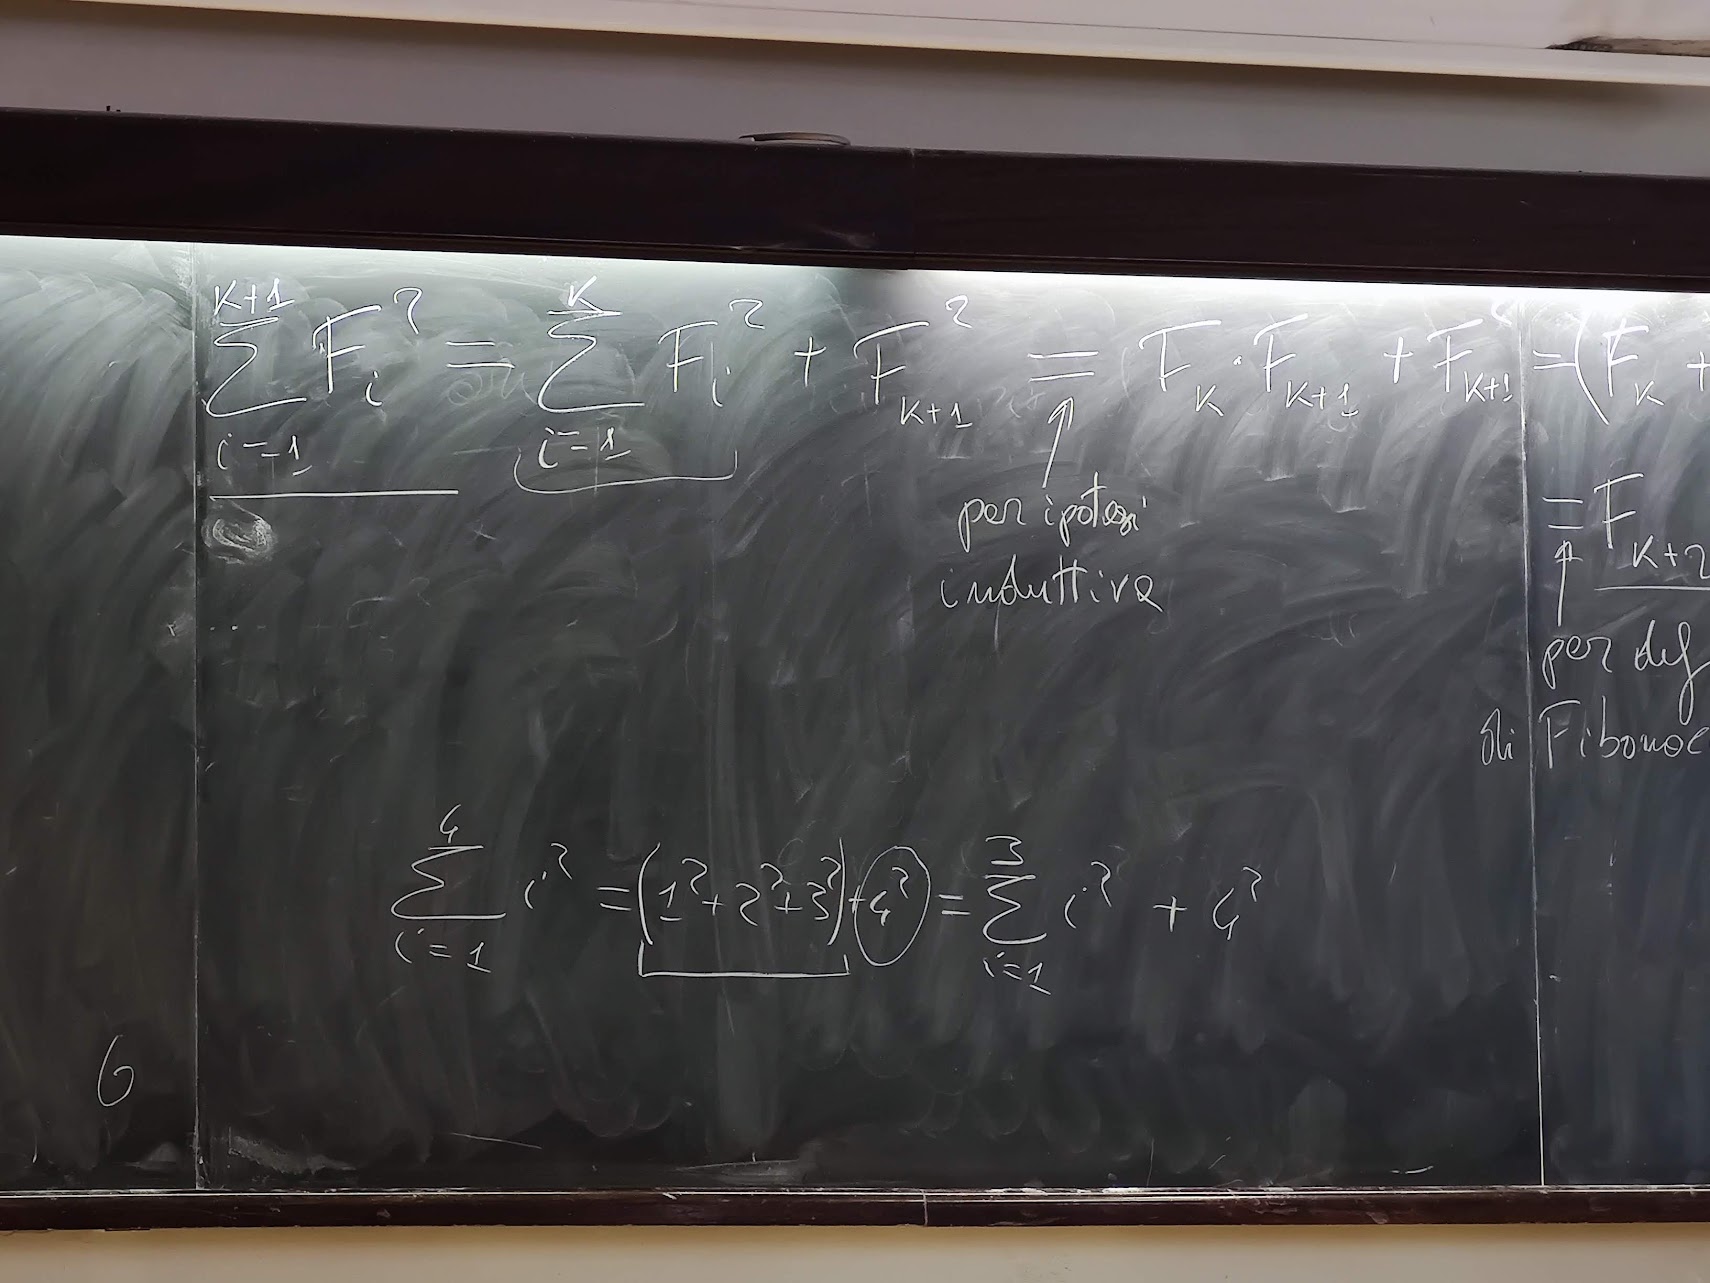 ∑_{i=1}^{K+1} F_i² = ∑_{i=1}^{K} F_i² + F_{K+1}² = F_K · F_{K+1} + F_{K+1}² = (F_K +
per ipotesi
induttiva
= F_{K+2}
per def
di Fibonac
∑_{i=1}^{4} i² = (1² + 2² + 3²) + 4² = ∑_{i=1}^{3} i² + 4²
6